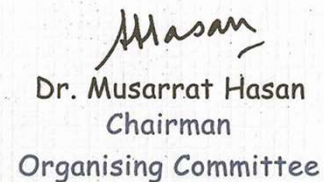 MHasan
Dr. Musarrat Hasan
Chairman
Organising Committee